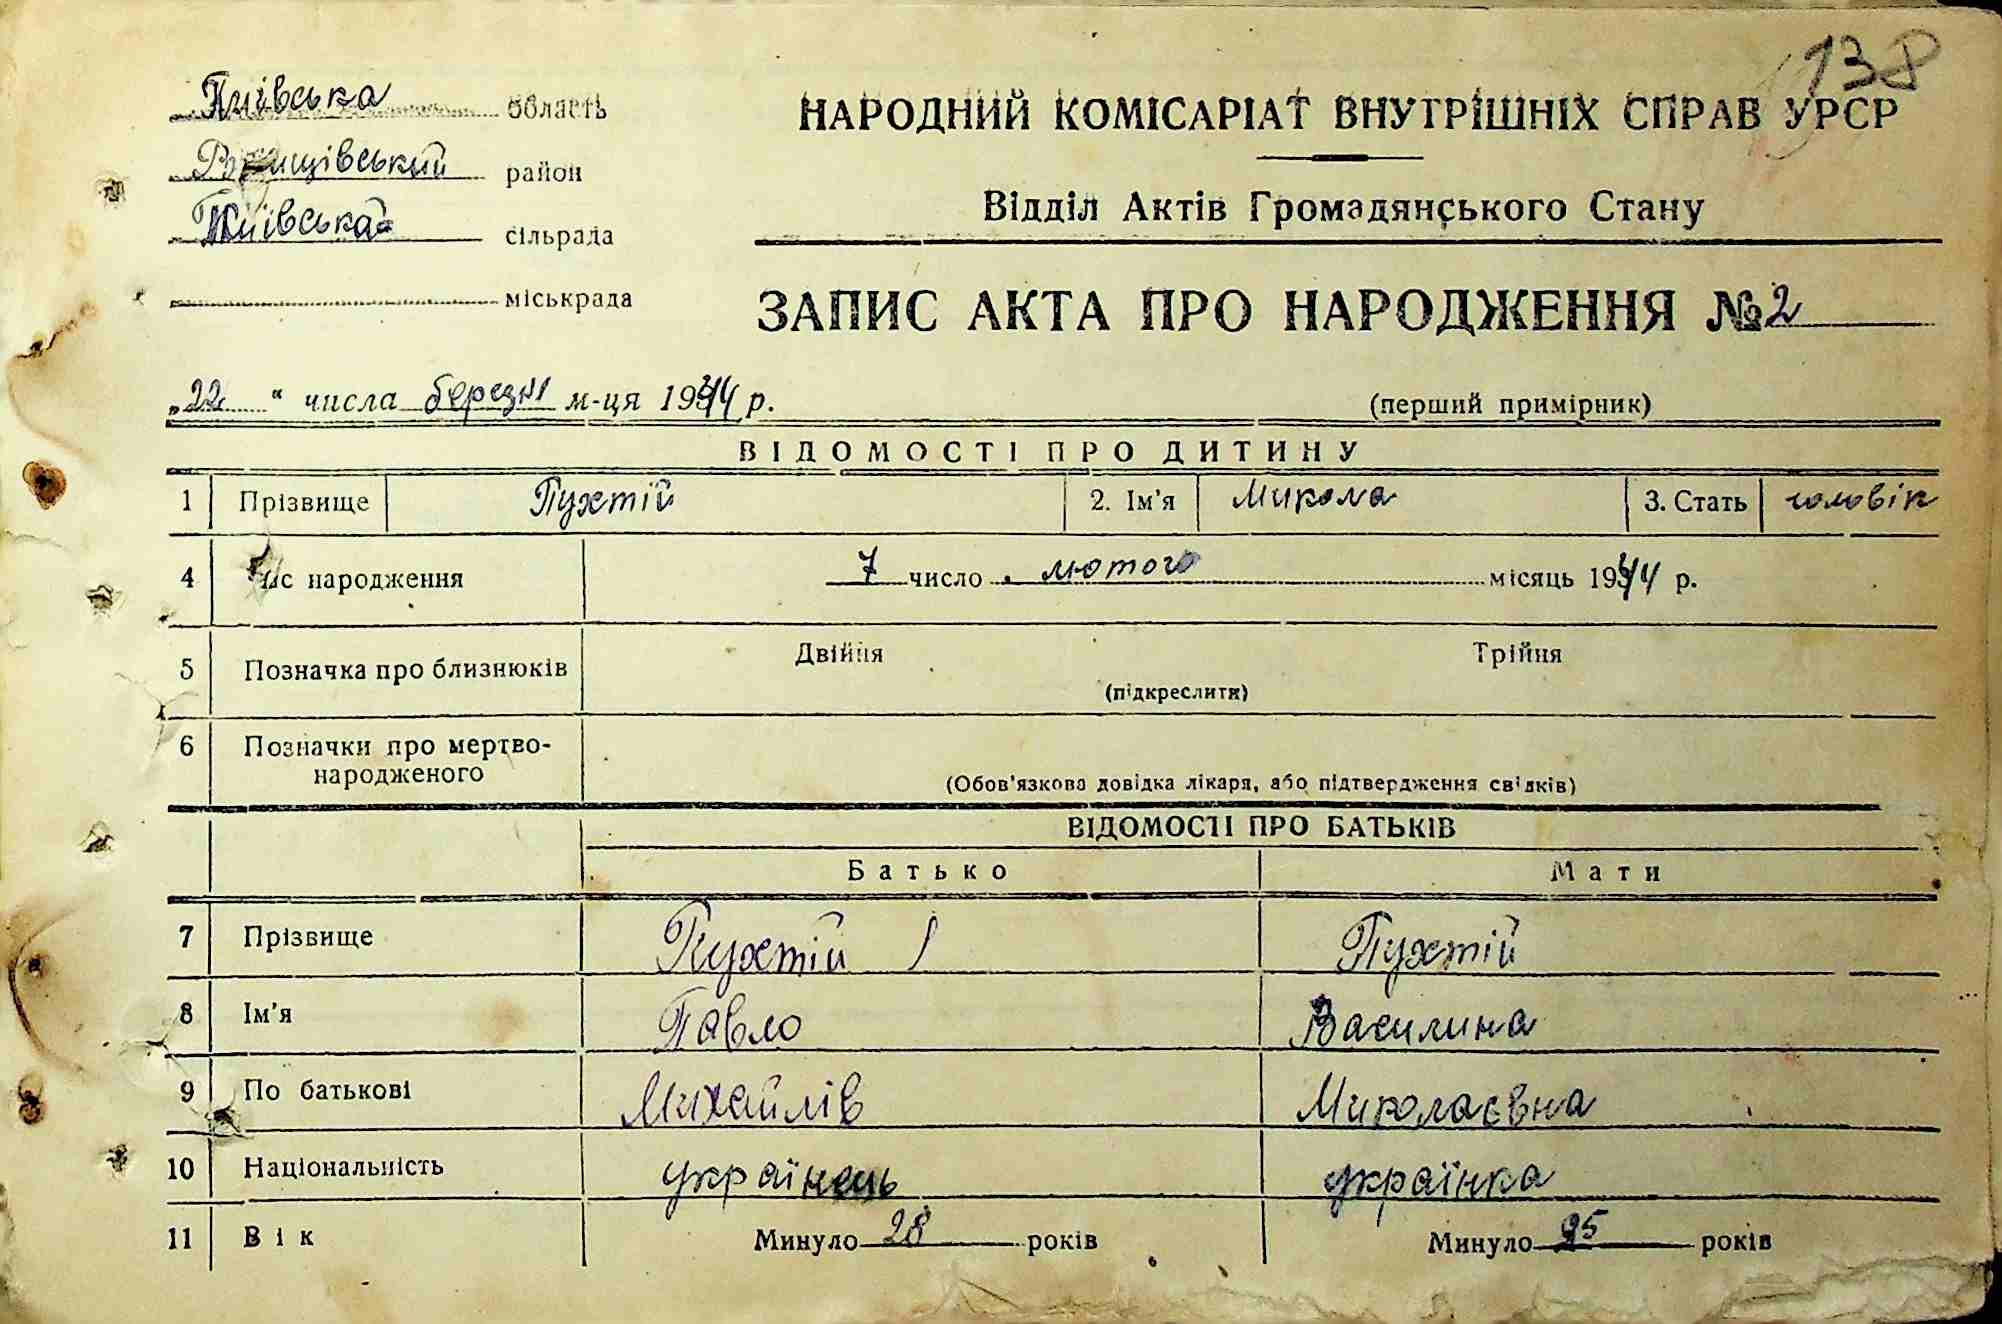 138
Київська область
район
Київська сільрада
міськрада
НАРОДНИЙ КОМІСАРІАТ ВНУТРІШНІХ СПРАВ УРСР
Відділ Актів Громадянського Стану
ЗАПИС АКТА ПРО НАРОДЖЕННЯ № 2
„22“ числа березня м-ця 1944 р.
(перший примірник)
ВІДОМОСТІ ПРО ДИТИНУ
1 Прізвище Пухтій 2. Ім'я Микола 3. Стать чоловік
4 Час народження 7 число лютого місяць 1944 р.
5 Позначка про близнюків Двійня Трійня
(підкреслити)
6 Позначки про мертво-
народженого
(Обов'язкова довідка лікаря, або підтвердження свідків)
ВІДОМОСТІ ПРО БАТЬКІВ
Батько Мати
7 Прізвище Пухтій Пухтій
8 Ім'я Павло Василина
9 По батькові Михайлів Миколаєвна
10 Національність українець українка
11 Вік Минуло 28 років Минуло 25 років